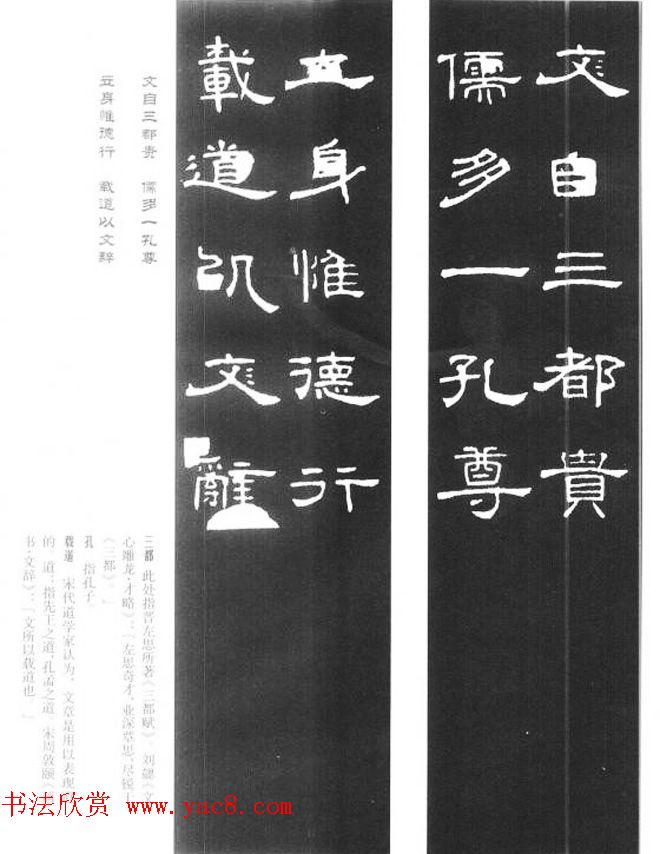 文自三都貴
儒多一孔尊
立身惟德行
載道以文辭
文自三都贵 儒多一孔尊
立身惟德行 载道以文辞
三都 此处指晋左思所著《三都赋》。刘勰《文
心雕龙·才略》：「左思奇才，业深覃思，尽锐于
《三都》。」
孔 指孔子。
载道 宋代道学家认为，文章是用以表现
的，道，指先王之道、孔孟之道。宋周敦颐《
书·文辞》：「文所以载道也。」
书法欣赏 www.yac8.com